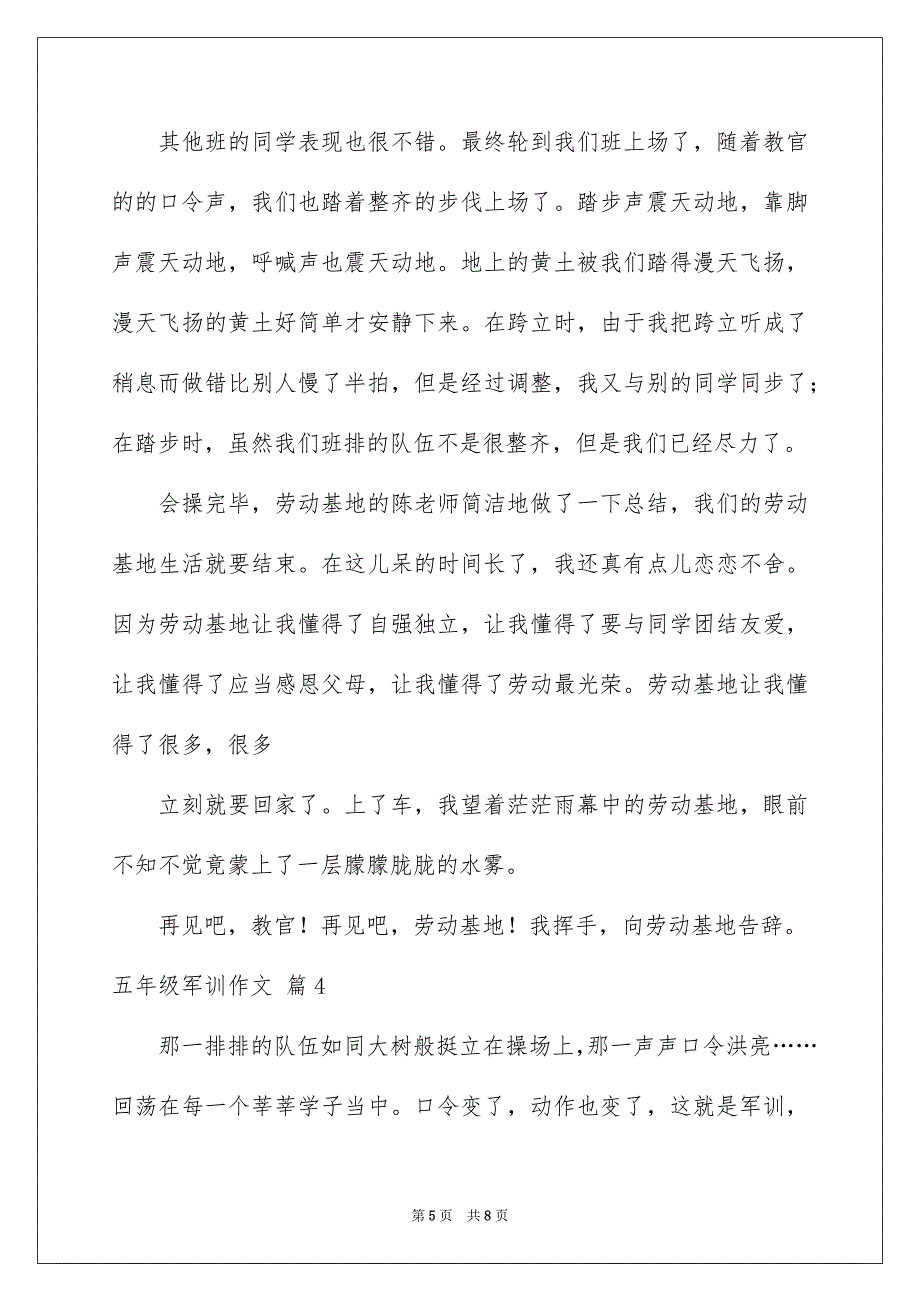 其他班的同学表现也很不错。最终轮到我们班上场了，随着教官
的的口令声，我们也踏着整齐的步伐上场了。踏步声震天动地，靠脚
声震天动地，呼喊声也震天动地。地上的黄土被我们踏得漫天飞扬，
漫天飞扬的黄土好简单才安静下来。在跨立时，由于我把跨立听成了
稍息而做错比别人慢了半拍，但是经过调整，我又与别的同学同步了；
在踏步时，虽然我们班排的队伍不是很整齐，但是我们已经尽力了。
会操完毕，劳动基地的陈老师简洁地做了一下总结，我们的劳动
基地生活就要结束。在这儿呆的时间长了，我还真有点儿恋恋不舍。
因为劳动基地让我懂得了自强独立，让我懂得了要与同学团结友爱，
让我懂得了应当感恩父母，让我懂得了劳动最光荣。劳动基地让我懂
得了很多，很多
立刻就要回家了。上了车，我望着茫茫雨幕中的劳动基地，眼前
不知不觉竟蒙上了一层朦朦胧胧的水雾。
再见吧，教官！再见吧，劳动基地！我挥手，向劳动基地告辞。
五年级军训作文 篇4
那一排排的队伍如同大树般挺立在操场上,那一声声口令洪亮……
回荡在每一个莘莘学子当中。口令变了，动作也变了，这就是军训，
第5页 共8页